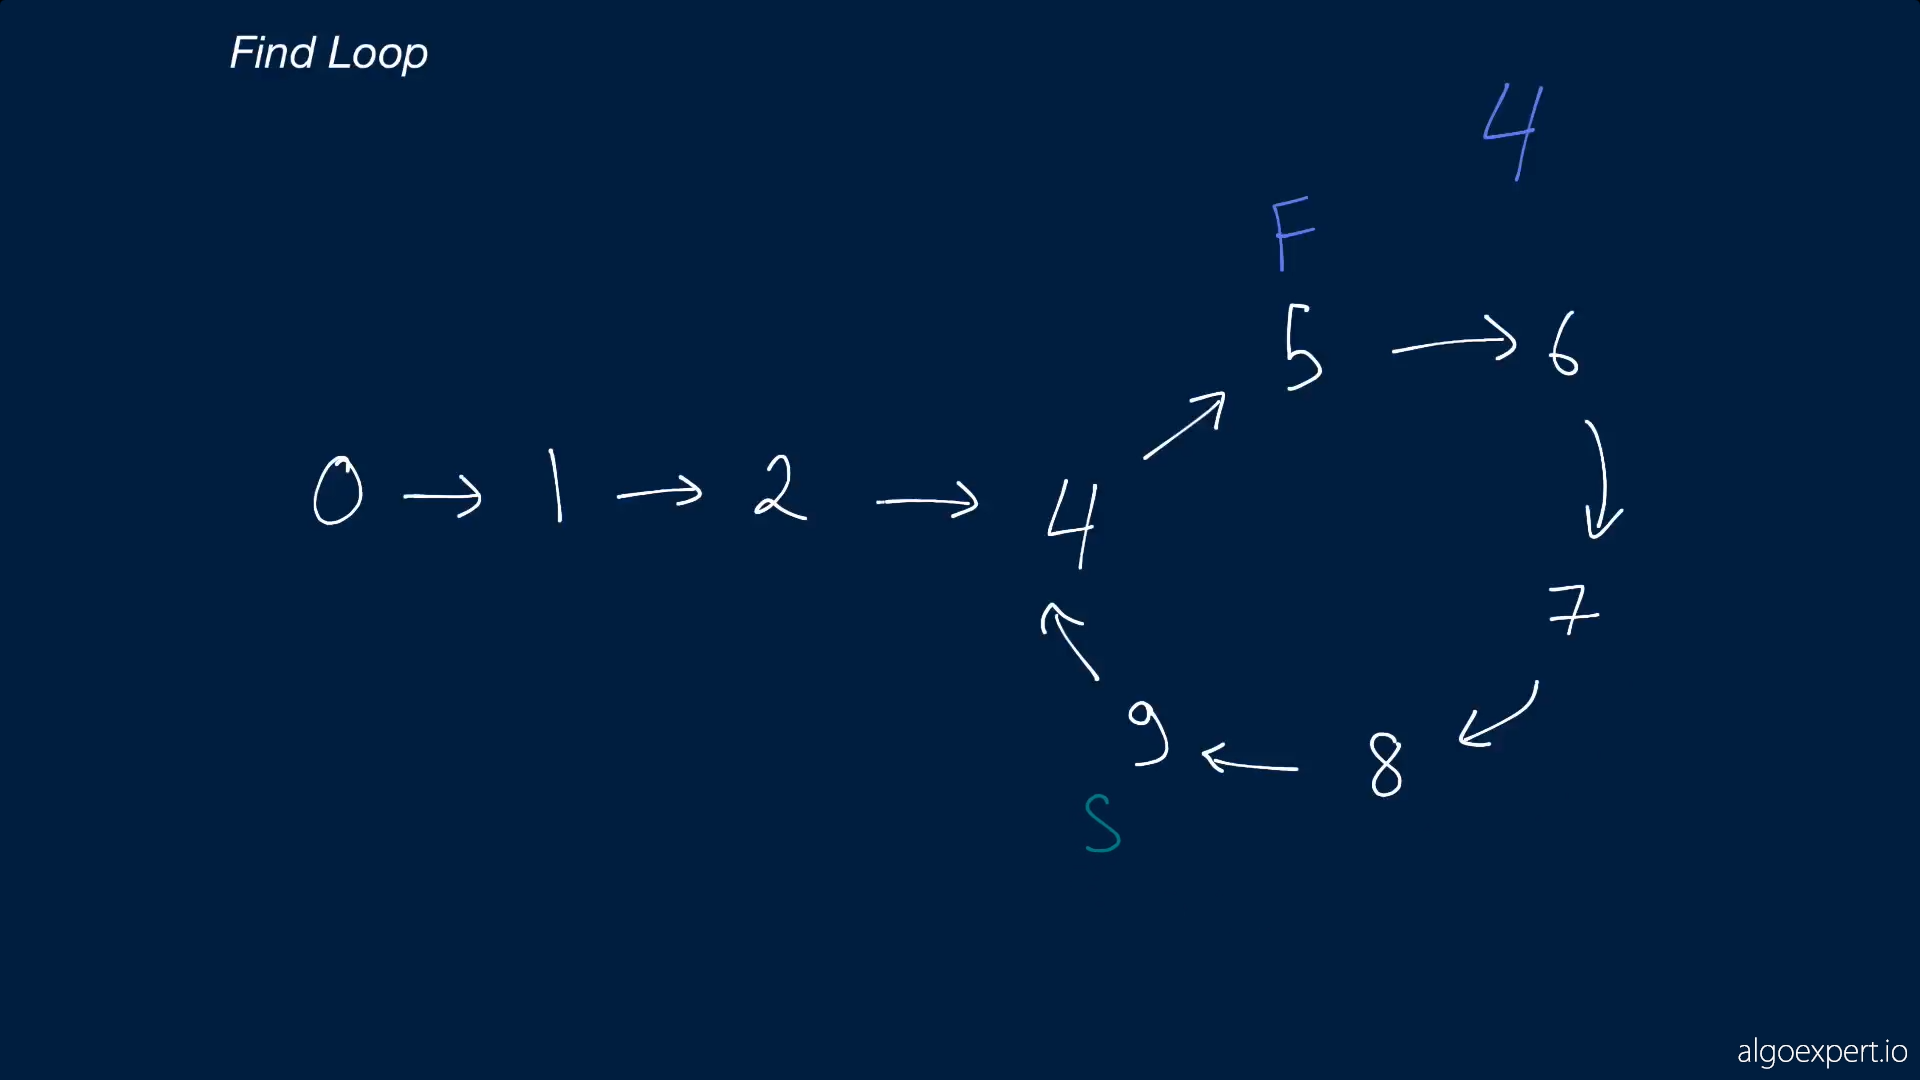 Find Loop
4
F
5 → 6
0 → 1 → 2 → 4
7
9 ← 8
S
algoexpert.io